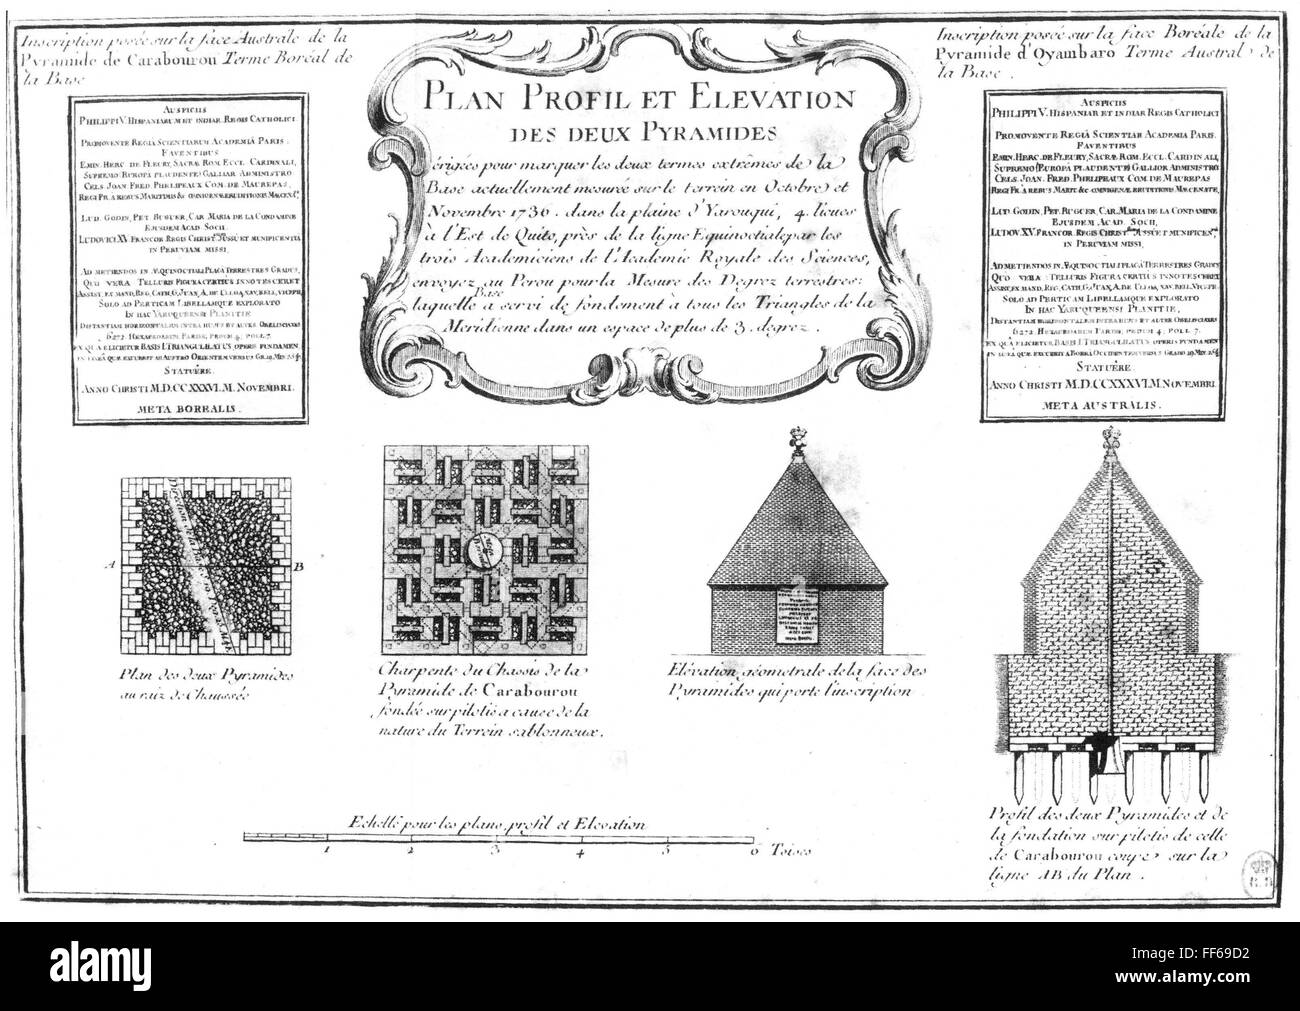 Inscription posée sur la face Australe de la
Pyramide de Carabourou Terme Boréal de
la Base
AUSPICIIS
PHILIPPI V. HISPANIARUM ET INDIAR REGIS CATHOLICI
PROMOVENTE REGIA SCIENTIARUM ACADEMIÂ PARIS.
FAVENTIBUS
EMIN. HERC. DE FLEURY, SACRÆ ROM. ECCL. CARDINALI,
SUPREMO EUROPÂ PLAUDENTE GALLIAR ADMINISTRO
CELS. JOAN. FRED. PHELIPEAUX COM. DE MAUREPAS,
REGI FR. A REBUS MARITIMIS &c OMNIGENÆ ERUDITIONIS
LUD. GODIN, PET. BUGUER, CAR. MARIA DE LA CONDAMINE
EJUSDEM ACAD. SOCII.
LUDOVICI XV. FRANCOR. REGIS CHRIST. JUSSU ET MUNIFICENTIA
IN PERUVIAM MISSI,
AD METIENDOS IN ÆQUINOCTIALI PLAGÂ TERRESTRES GRADUS,
QUO VERA TELLURIS FIGURA CERTIUS INNOTESCERET
ASSIST. ET MAND. REG. CATH. G. JUAN, A. DE ULLOA, NAV. BELL.
SOLO AD PERTICAM LIBELLAMQUE EXPLORATO
IN HAC YARUQUENSI PLANITIE
DISTANTIAM HORIZONTALEM INTRA HUJUS ET ALTER. OBELISCI AXES
6272. HEXAPEDARUM PARIS. PEDUM 4. POLL. 7.
EX QUÂ ELICIETUR BASIS I. TRIANGULI LATUS OPERIS FUNDAMEN,
STATUÊRE.
ANNO CHRISTI M.D.CC.XXXVI. M. NOVEMBRI.
META BOREALIS.
PLAN PROFIL ET ELEVATION
DES DEUX PYRAMIDES
érigées pour marquer les deux termes extrêmes de la
Base actuellement mesurée sur le terrein en Octobre et
Novembre 1736. dans la plaine d'Yarouqui, 4. lieues
à l'Est de Quito, près de la ligne Equinoctiale par les
trois Academiciens de l'Academie Royale des Sciences,
envoyez au Perou pour la Mesure des Degrez terrestres:
laquelle Base a servi de fondement à tous les Triangles de la
Meridienne dans un espace de plus de 3. degrez.
Inscription posée sur la face Boréale de la
Pyramide d'Oyambaro Terme Austral de
la Base.
AUSPICIIS
PHILIPPI V. HISPANIAR ET INDIAR REGIS CATHOLICI
PROMOVENTE REGIÂ SCIENTIAR ACADEMIA PARIS.
FAVENTIBUS
EMIN. HERC. DE FLEURY, SACRÆ ROM. ECCL. CARDINALI,
SUPREMO (EUROPÂ PLAUDENTE) GALLIOR ADMINISTRO
CELS. JOAN. FRED. PHELIPEAUX COM. DE MAUREPAS
REGI FR. A REBUS MARIT. &c OMNIGENÆ ERUDITIONIS MÆCENATE,
LUD. GODIN, PET. BUGUER, CAR. MARIA DE LA CONDAMINE
EJUSDEM ACAD. SOCII,
LUDOV. XV. FRANCOR. REGIS CHRIST. JUSSU ET MUNIFICEN.
IN PERUVIAM MISSI,
AD METIENDOS IN ÆQUINOCTIALI PLAGÂ TERRESTRES GRADUS
QUO VERA TELLURIS FIGURA CERTIUS INNOTESCERET
ASSISTEN. EX MAND. REG. CATH. G. JUAN, A. DE ULLOA, NAV. BELL.
SOLO AD PERTICAM LIBELLAMQUE EXPLORATO
IN HAC YARUQUENSI PLANITIE,
DISTANTIAM HORIZONTALEM INTRA HUJUS ET ALTER OBELISCI AXES
6272 HEXAPEDARUM PARIS. PEDUM 4. POLL. 7.
EX QUA ELICIETUR BASIS I. TRIANGULI LATUS OPERIS FUNDAMEN
STATUÊRE
ANNO CHRISTI M.D.CCXXXVI. M. NOVEMBRI.
META AUSTRALIS.
A B
Plan des deux Pyramides
au raiz de Chaussée
Charpente du Chassis de la
Pyramide de Carabourou
fondée sur pilotis a cause de la
nature du Terrein sablonneux.
Elévation géometrale de la face des
Pyramides qui porte l'inscription
Profil des deux Pyramides et de
la fondation sur pilotis de celle
de Carabourou coupe sur la
ligne AB du Plan.
Echelle pour les plans, profil et Elevation
1 2 3 4 5 6 Toises
alamy
Image ID: FF69D2
www.alamy.com